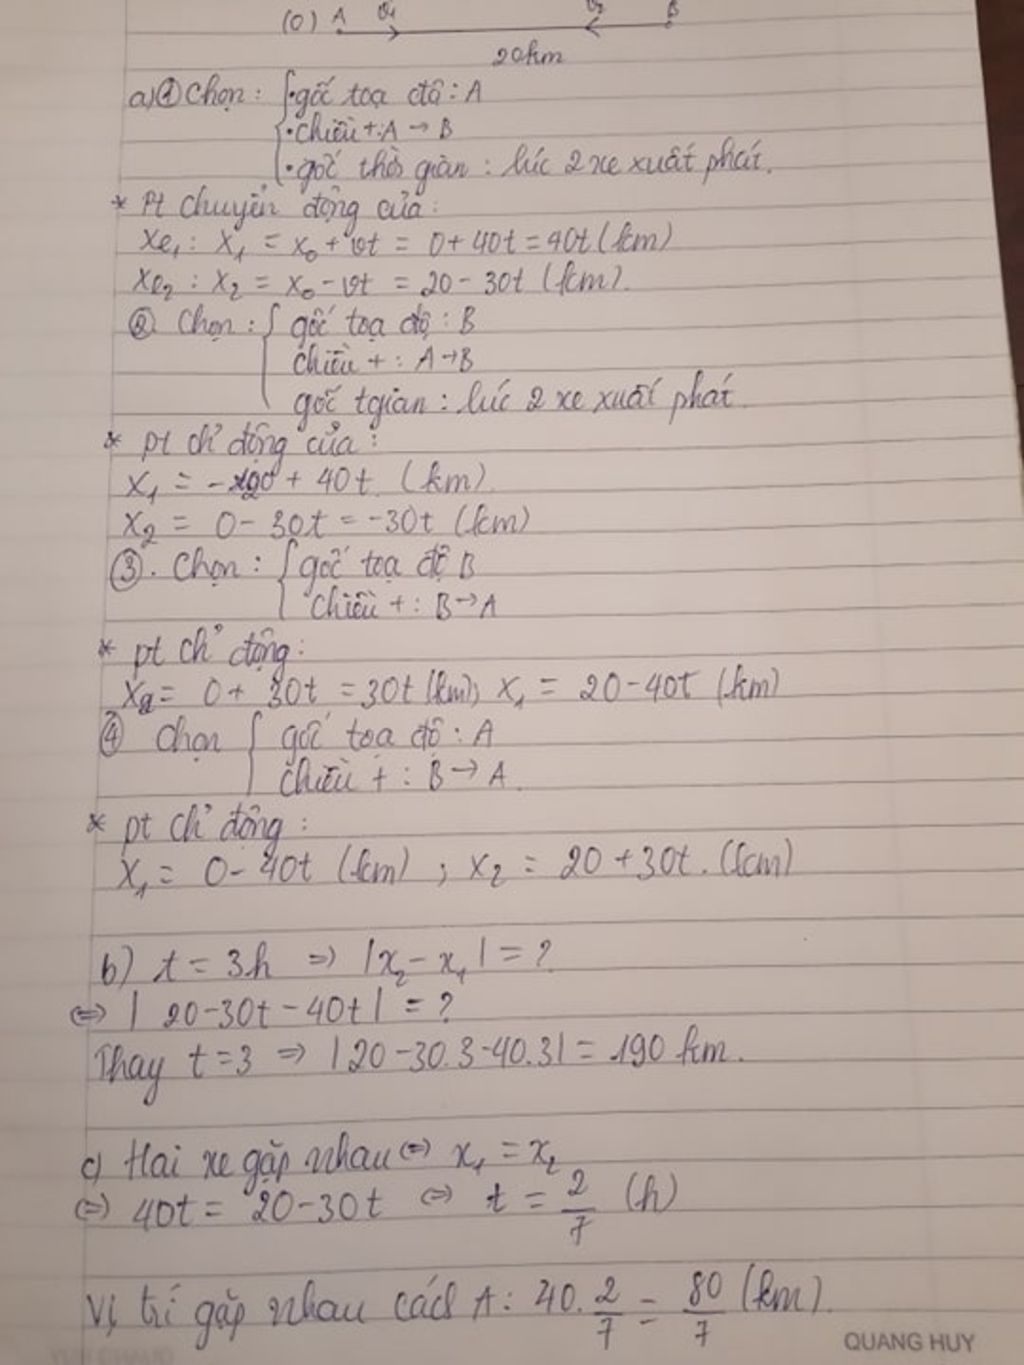 (0) A v₁ v₂ B
20km
a) ① Chọn : { • gốc toạ độ : A
• chiều + : A → B
• gốc thời gian : lúc 2 xe xuất phát.
* Pt chuyển động của :
Xe₁ : x₁ = x₀ + vt = 0 + 40t = 40t (km)
Xe₂ : x₂ = x₀ - vt = 20 - 30t (km).
② Chọn : { gốc toạ độ : B
chiều + : A → B
gốc tgian : lúc 2 xe xuất phát
* pt ch' động của :
x₁ = -20 + 40t (km)
x₂ = 0 - 30t = -30t (km)
③. Chọn : { gốc toạ độ B
chiều + : B → A
* pt ch' động :
x₂ = 0 + 30t = 30t (km); x₁ = 20 - 40t (km)
④ Chọn { gốc toạ độ : A
chiều + : B → A.
* pt ch' động :
x₁ = 0 - 40t (km) ; x₂ = 20 + 30t. (km)
b) t = 3h ⇒ |x₂ - x₁| = ?
⇔ | 20 - 30t - 40t | = ?
Thay t = 3 ⇒ | 20 - 30.3 - 40.3 | = 190 km.
c) Hai xe gặp nhau ⇔ x₁ = x₂
⇔ 40t = 20 - 30t ⇔ t = 2/7 (h)
Vị trí gặp nhau cách A : 40. 2/7 = 80/7 (km).
QUANG HUY